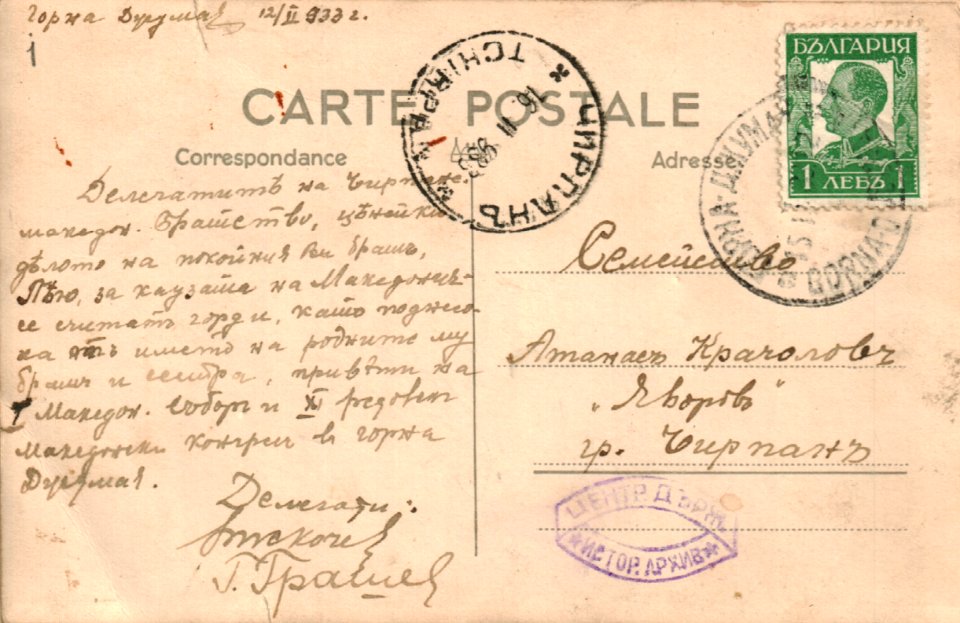 Горна Джумая 12/II 933 г.
1
БЪЛГАРИЯ
1 ЛЕВЪ 1
CARTE POSTALE
Correspondance
Adresse
ЧИРПАНЪ
TCHIRPAN
16 II 933
ГОРНА-ДЖУМАЯ
GORNA
Делегатитѣ на Чирпанс.
македон. Братство, цѣнейки
дѣлото на покойния Ви братъ,
Пѣю, за каузата на Македония -
се считатъ горди, като поднесо-
ха отъ името на родните му
братъ и сестра, привѣти на
I Македон. Съборъ и XI редовен
Македонски конгрес в горна
Джумая.
Делегати:
Г. Грашев
Семейство
Атанасъ Крачоловъ
„Яворовъ“
гр. Чирпанъ
ЦЕНТР. ДЪРЖ.
ИСТОР. АРХИВ